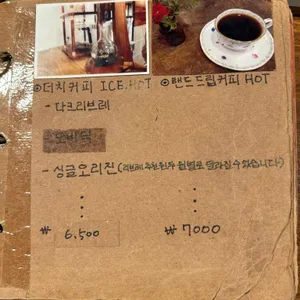 ⊙더치커피 ICE.HOT ⊙핸드드립커피 HOT
- 다크리브레
- 싱글오리진(리브레 추천 원두 월별로 달라질 수 있습니다!)
₩ 6,500 ₩ 7000